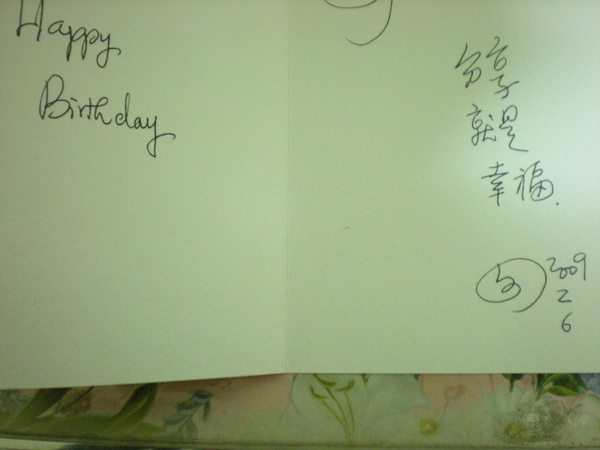 Happy
Birthday
分享
就是
幸福.
2009
2
6